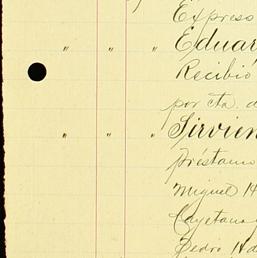 Expreso
" " " Eduar
Recibió
por cta. d
" " " Sirvien
préstamo
Miguel H
Cayetano
Pedro Ha